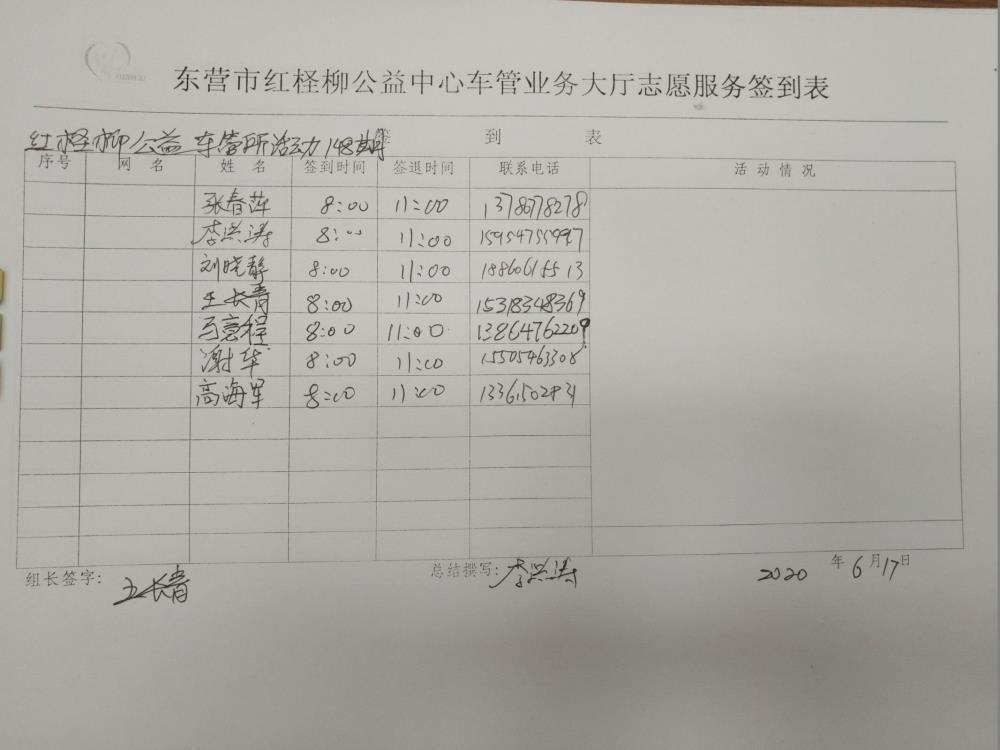 东营市红柽柳公益中心车管业务大厅志愿服务签到表
签 到 表
红柽柳公益车管所活动148期
序号 网 名 姓 名 签到时间 签退时间 联系电话 活动情况
张春萍 8:00 11:00 13780778278
李兴涛 8:00 11:00 15954755997
刘晓静 8:00 11:00 18860615513
王长青 8:00 11:00 15318348369
8:00 11:00 13864762209
谢华 8:00 11:00 15505463308
高海军 8:00 11:00
组长签字: 王长青 总结撰写: 李兴涛 2020 年 6 月 17 日